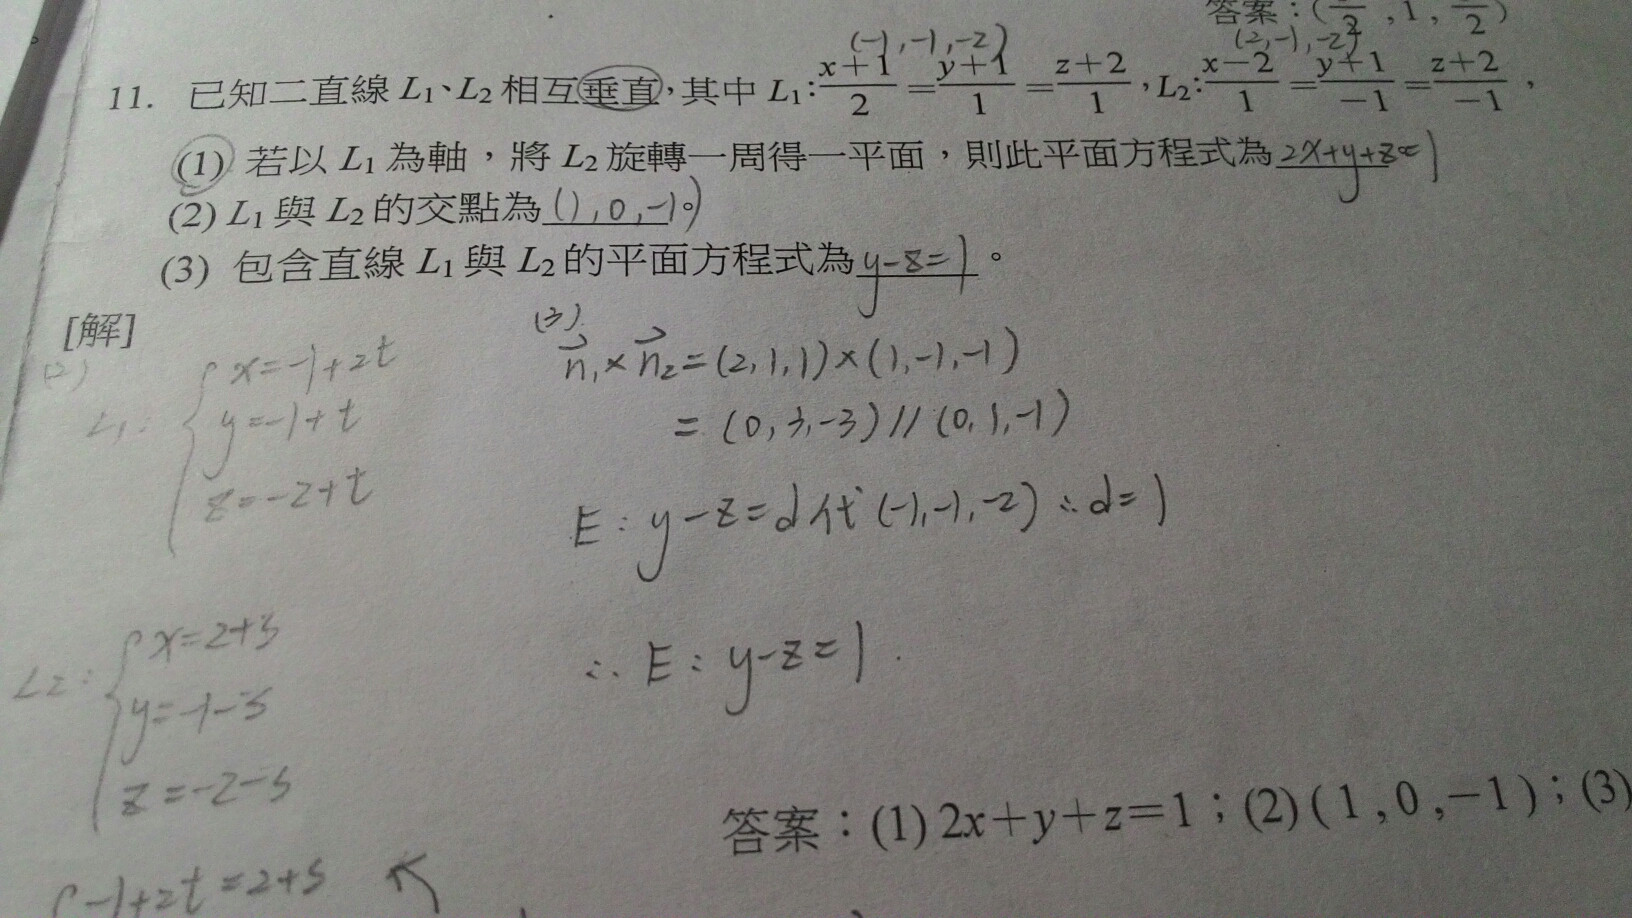 答案：( /2 , 1 , /2 )
(-1,-1,-2) (2,-1,-2)
11. 已知二直線 L₁、L₂ 相互垂直，其中 L₁：(x+1)/2=(y+1)/1=(z+2)/1，L₂：(x-2)/1=(y+1)/-1=(z+2)/-1，
(1) 若以 L₁ 為軸，將 L₂ 旋轉一周得一平面，則此平面方程式為 2x+y+z=1
(2) L₁ 與 L₂ 的交點為 (1,0,-1)。
(3) 包含直線 L₁ 與 L₂ 的平面方程式為 y-z=1。
[解]
(2)
L₁: { x=-1+2t
y=-1+t
z=-2+t
L₂: { x=2+s
y=-1-s
z=-2-s
{ -1+2t=2+s
(3)
n₁×n₂=(2,1,1)×(1,-1,-1)
=(0,3,-3)//(0,1,-1)
E: y-z=d 代(-1,-1,-2) ∴d=1
∴ E: y-z=1.
答案：(1) 2x+y+z=1；(2) (1,0,-1)；(3)